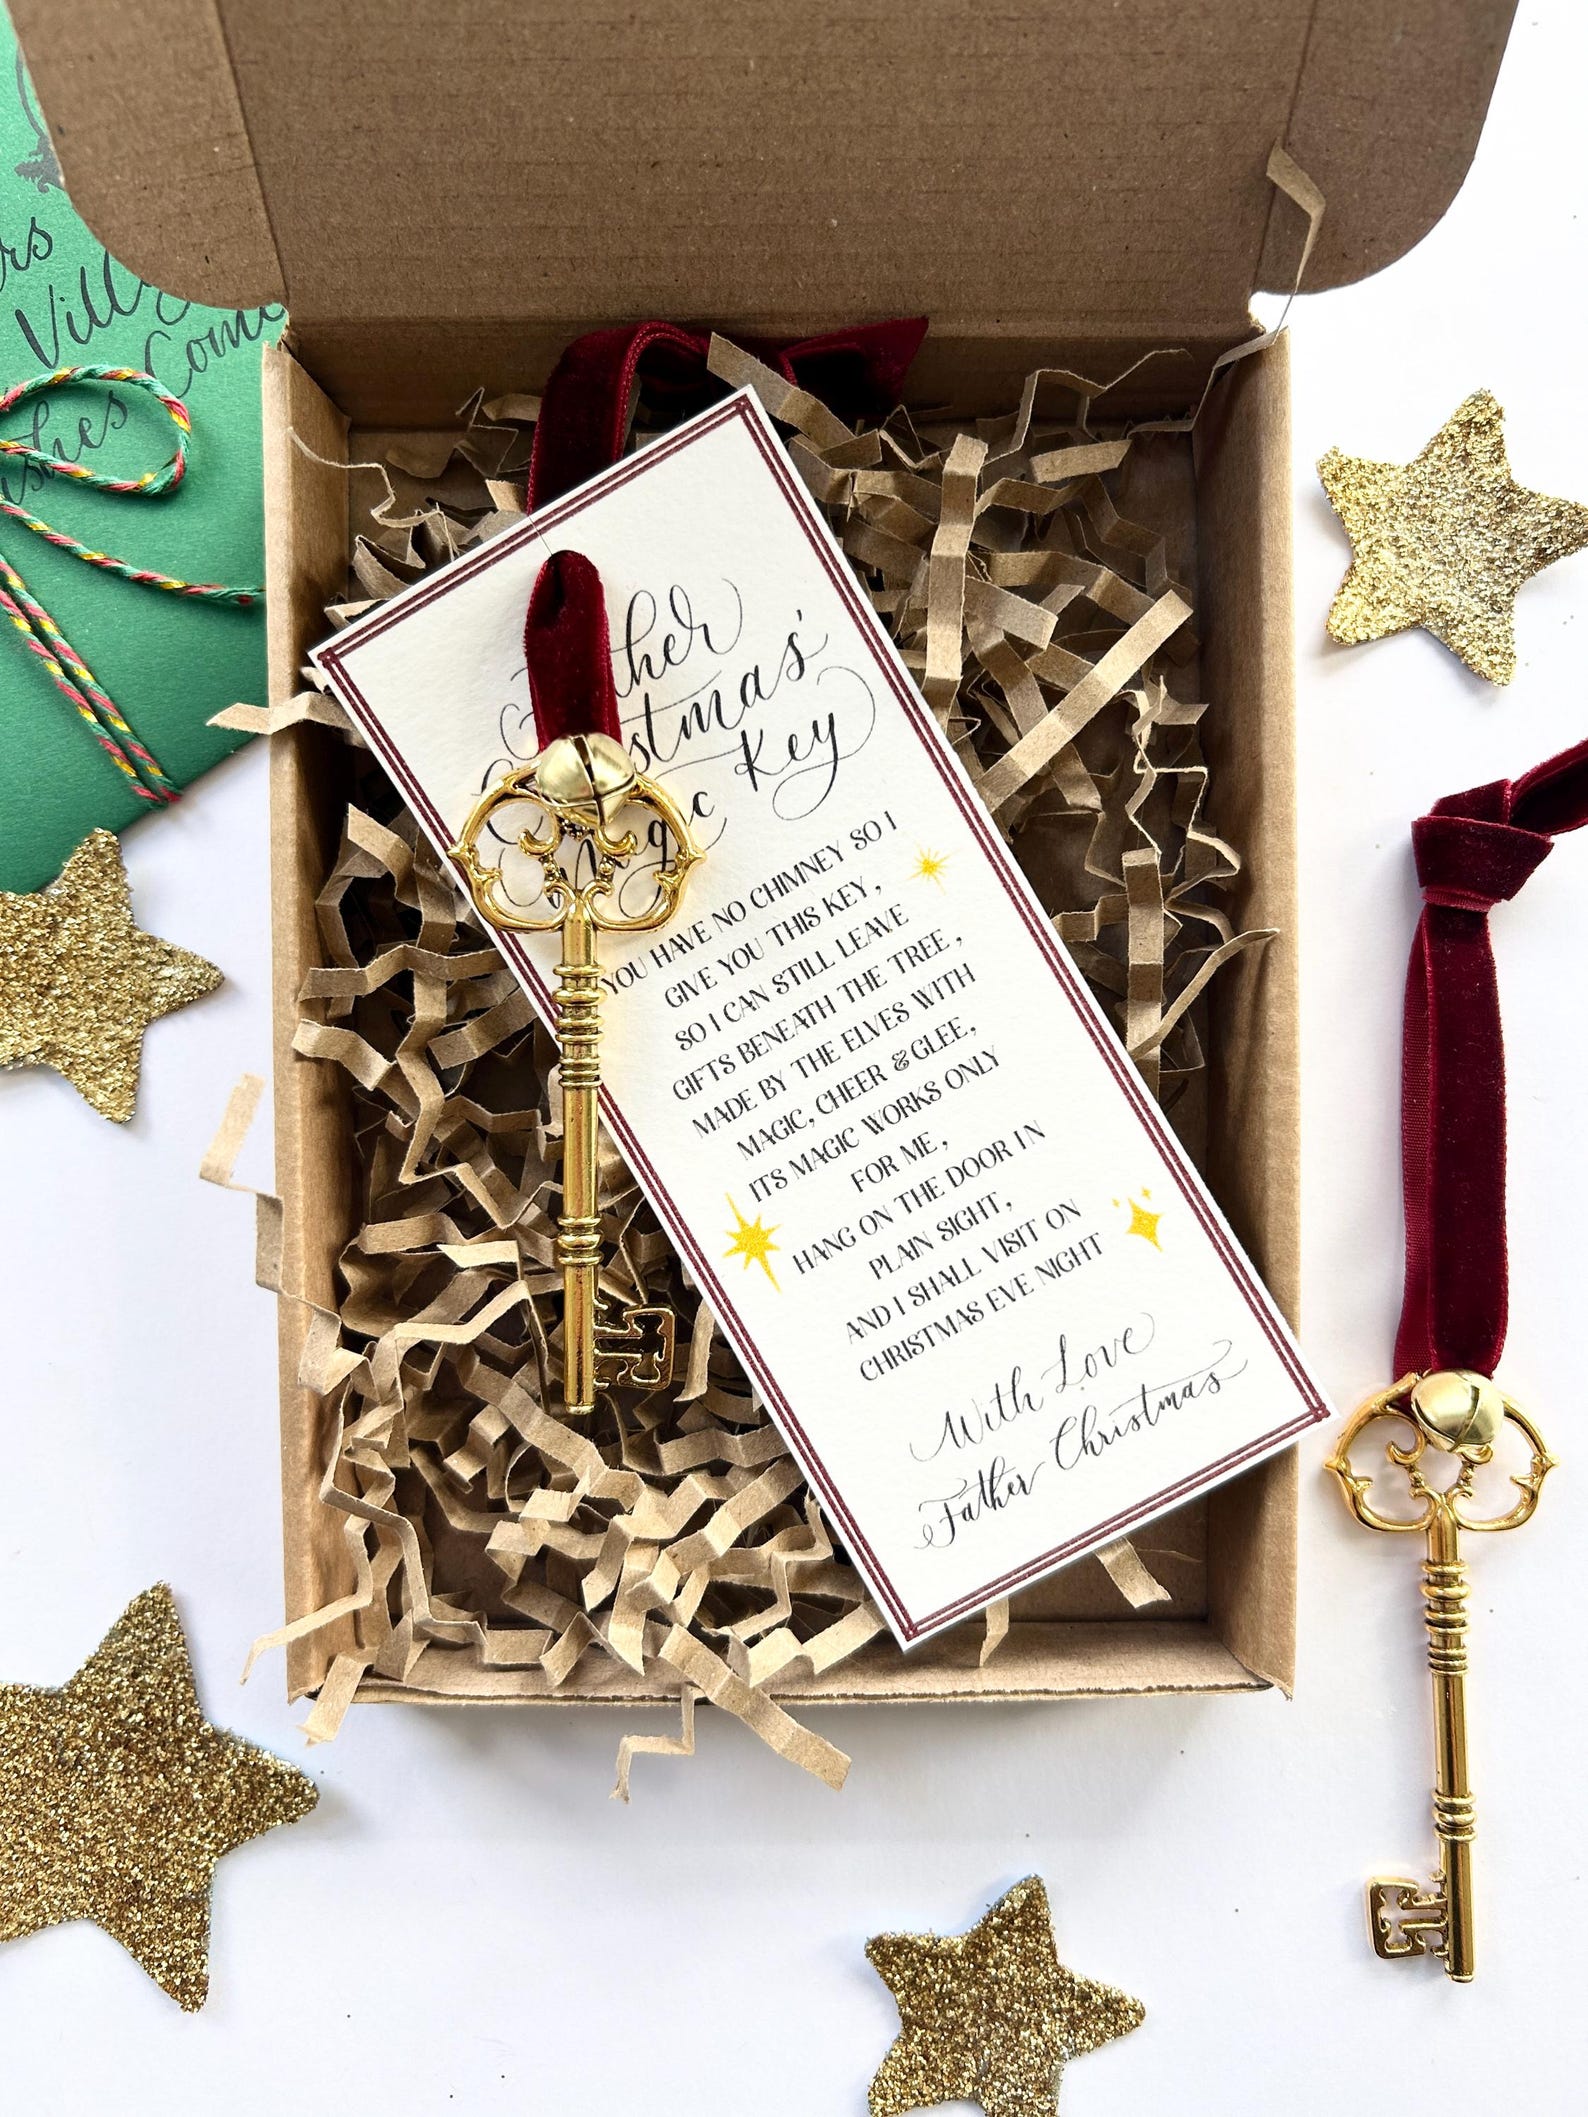 Father
Christmas'
Magic Key
YOU HAVE NO CHIMNEY SO I
GIVE YOU THIS KEY,
SO I CAN STILL LEAVE
GIFTS BENEATH THE TREE,
MADE BY THE ELVES WITH
MAGIC, CHEER & GLEE,
ITS MAGIC WORKS ONLY
FOR ME,
HANG ON THE DOOR IN
PLAIN SIGHT,
AND I SHALL VISIT ON
CHRISTMAS EVE NIGHT
With Love
Father Christmas